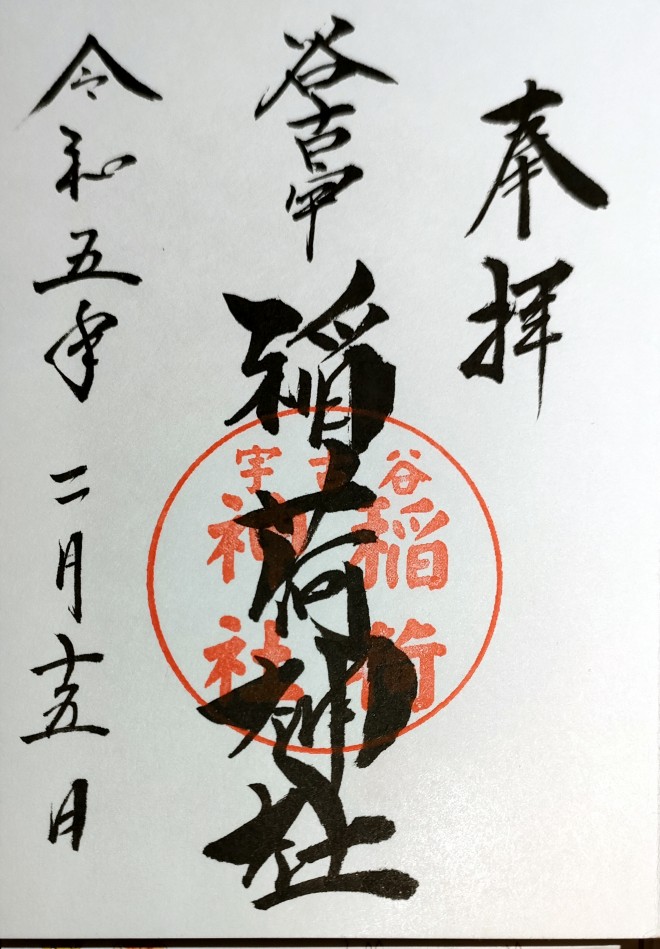 奉拝
谷古宇
稲荷神社
谷古宇
稲荷
神社
令和五年二月十五日